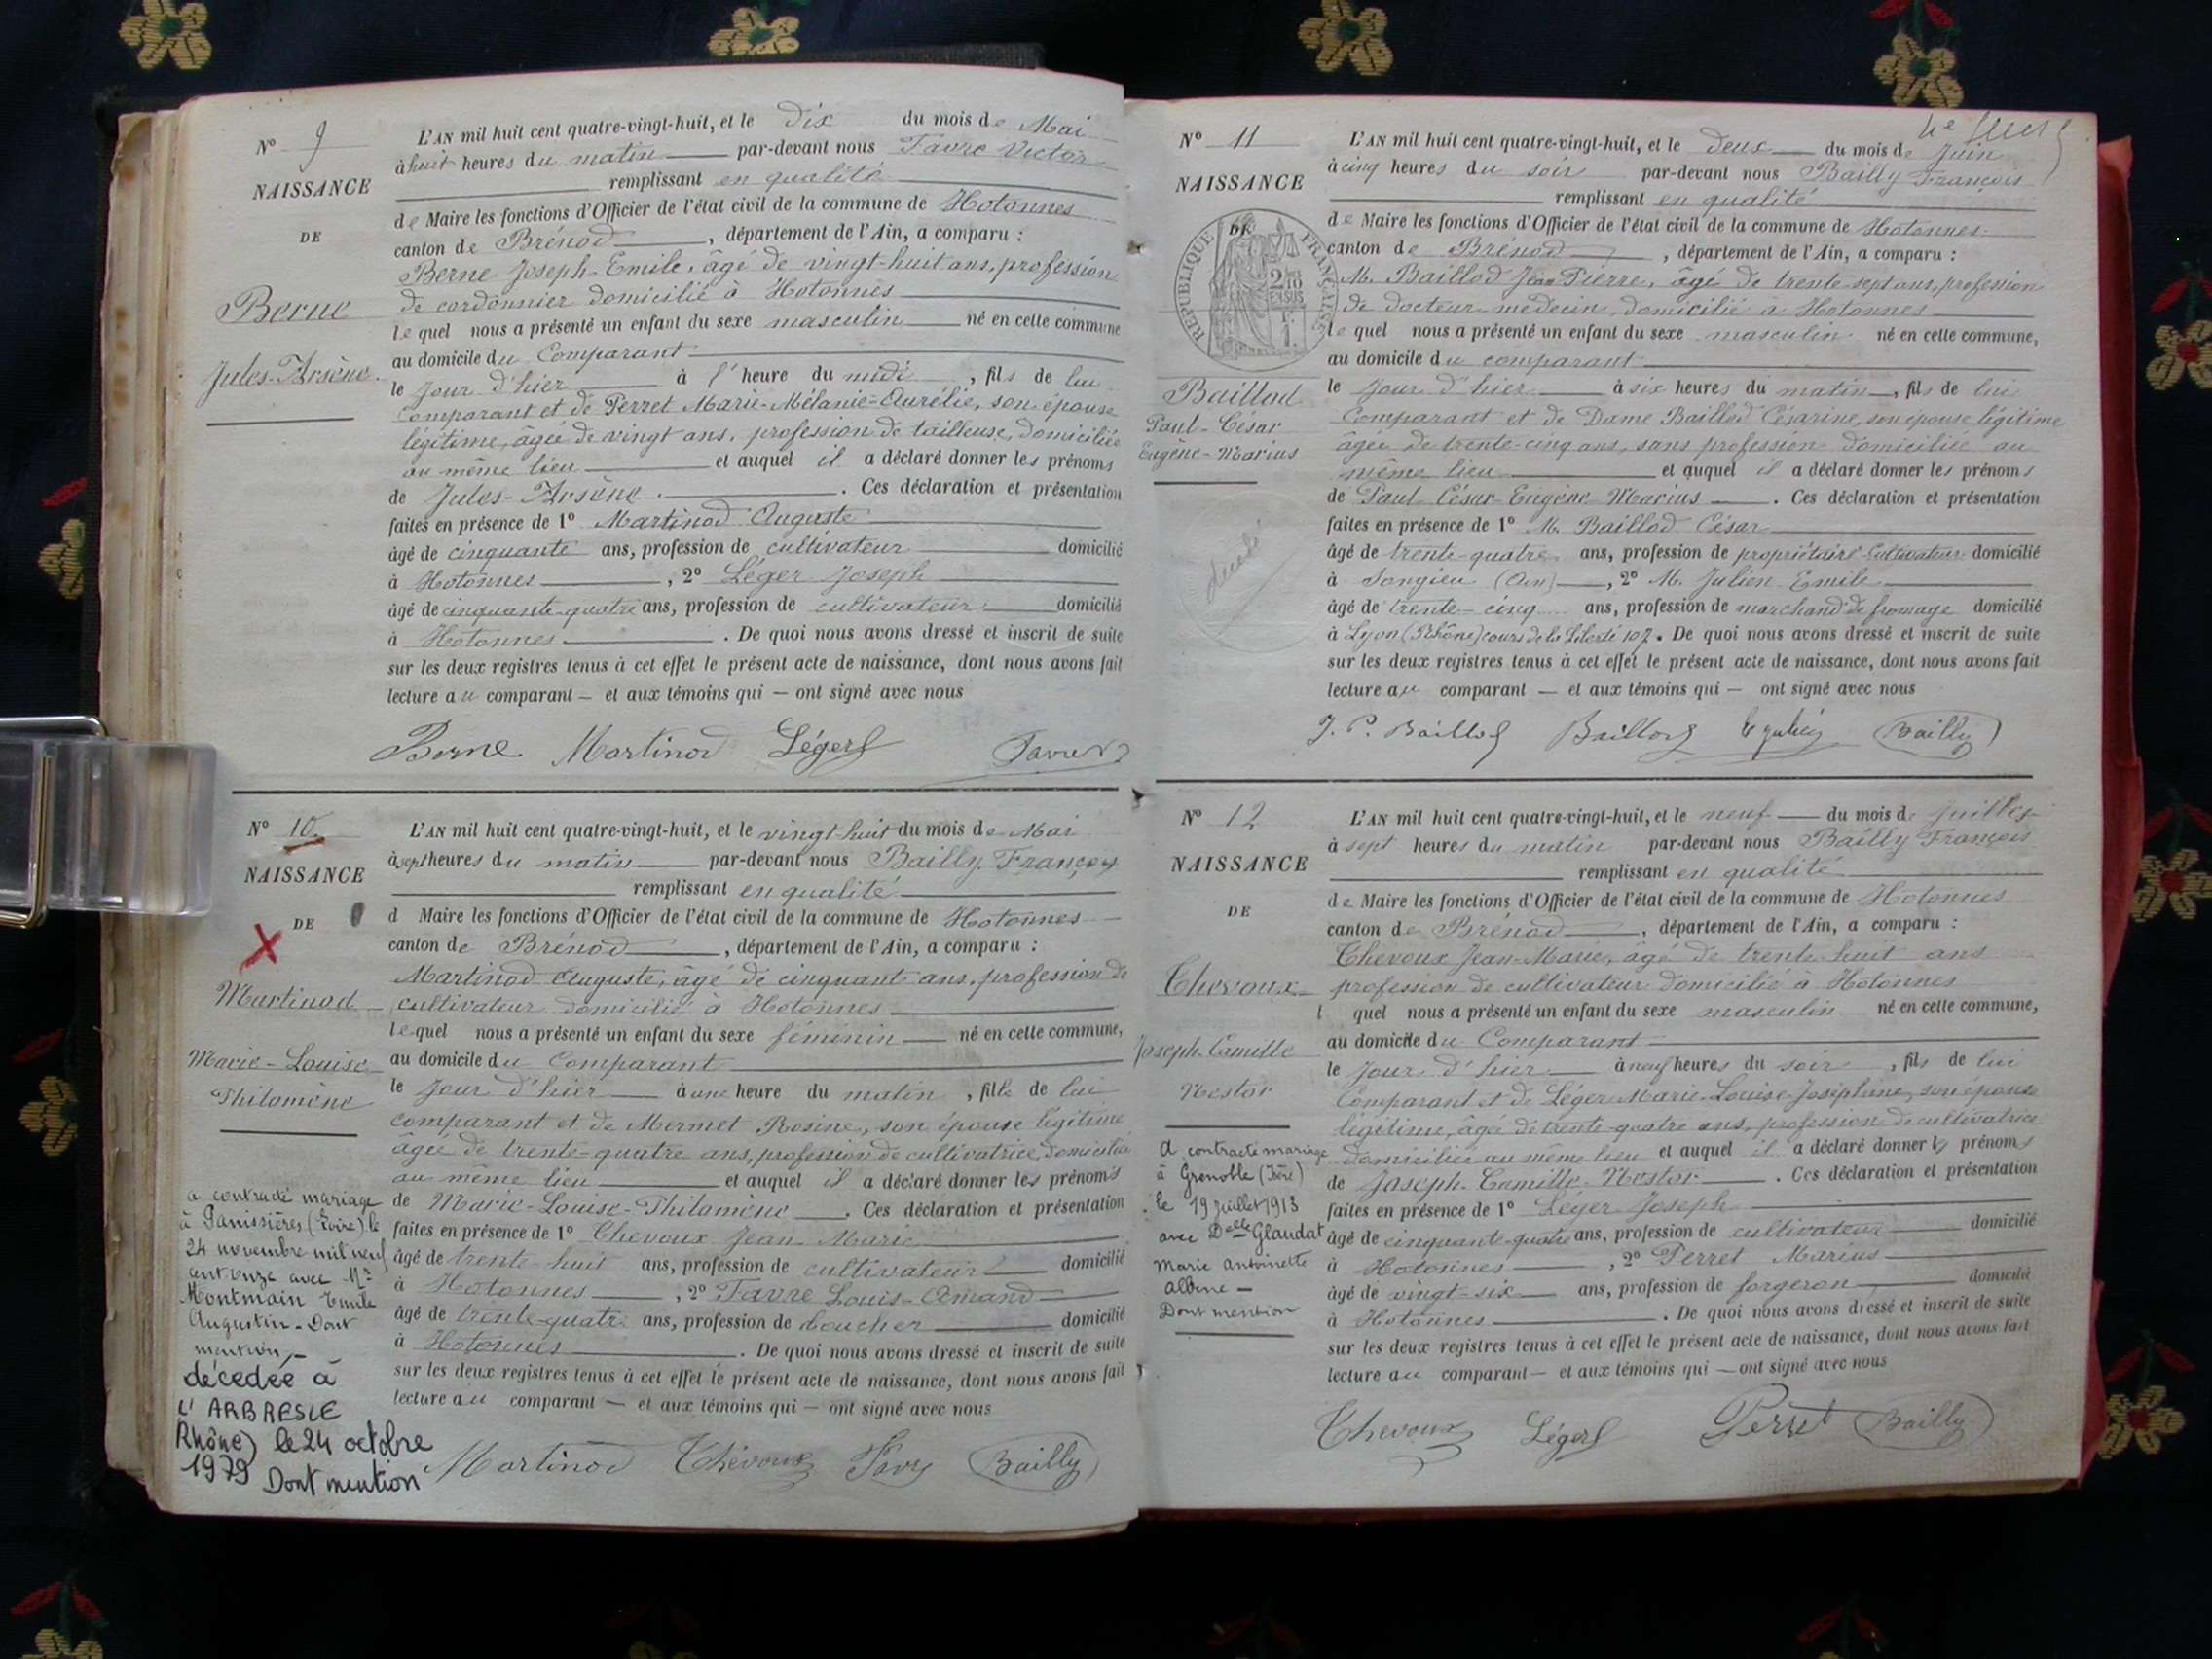 N° 9
NAISSANCE
DE
Berne
Jules-Arsène.
L'AN mil huit cent quatre-vingt-huit, et le dix du mois de Mai
à huit heures du matin par-devant nous Favre Victor
remplissant en qualité
de Maire les fonctions d'Officier de l'état civil de la commune de Hotonnes
canton de Brénod, département de l'Ain, a comparu :
Berne Joseph-Emile, âgé de vingt-huit ans, profession
de cordonnier domicilié à Hotonnes
lequel nous a présenté un enfant du sexe masculin né en cette commune
au domicile du Comparant
le jour d'hier à l'heure du midi, fils de lui
comparant et de Perret Marie-Mélanie-Aurélie, son épouse
légitime, âgée de vingt ans, profession de tailleuse, domiciliée
au même lieu et auquel il a déclaré donner les prénoms
de Jules-Arsène. Ces déclaration et présentation
faites en présence de 1° Martinod Auguste
âgé de cinquante ans, profession de cultivateur domicilié
à Hotonnes, 2° Léger Joseph
âgé de cinquante-quatre ans, profession de cultivateur domicilié
à Hotonnes. De quoi nous avons dressé et inscrit de suite
sur les deux registres tenus à cet effet le présent acte de naissance, dont nous avons fait
lecture au comparant — et aux témoins qui — ont signé avec nous
Berne Martinod Léger Favre V
N° 10.
NAISSANCE
DE
Martinod
Marie-Louise
Philomène
a contracté mariage
à Panissières (Loire) le
24 novembre mil neuf
cent onze avec Mr
Montmain Emile
Augustin - Dont
mention -
décédée à
L'ARBRESLE
Rhône) le 24 octobre
1979 Dont mention
L'AN mil huit cent quatre-vingt-huit, et le vingt-huit du mois de Mai
à sept heures du matin par-devant nous Bailly François
remplissant en qualité
d Maire les fonctions d'Officier de l'état civil de la commune de Hotonnes
canton de Brénod, département de l'Ain, a comparu :
Martinod Auguste, âgé de cinquante ans, profession de
cultivateur domicilié à Hotonnes
lequel nous a présenté un enfant du sexe féminin né en cette commune,
au domicile du Comparant
le jour d'hier à une heure du matin, fille de lui
comparant et de Mermet Rosine, son épouse légitime
âgée de trente-quatre ans, profession de cultivatrice, domiciliée
au même lieu et auquel il a déclaré donner les prénoms
de Marie-Louise-Philomène. Ces déclaration et présentation
faites en présence de 1° Chevoux Jean Marie
âgé de trente-huit ans, profession de cultivateur domicilié
à Hotonnes, 2° Favre Louis-Amand
âgé de trente-quatre ans, profession de boucher domicilié
à Hotonnes. De quoi nous avons dressé et inscrit de suite
sur les deux registres tenus à cet effet le présent acte de naissance, dont nous avons fait
lecture au comparant — et aux témoins qui — ont signé avec nous
Martinod Chevoux Bailly
N° 11
NAISSANCE
DE
REPUBLIQUE FRANÇAISE
2/10
EN SUS
Baillod
Paul-César
Eugène-Marius
décédé
L'AN mil huit cent quatre-vingt-huit, et le deux du mois de Juin
à cinq heures du soir par-devant nous Bailly François
remplissant en qualité
de Maire les fonctions d'Officier de l'état civil de la commune de Hotonnes
canton de Brénod, département de l'Ain, a comparu :
M. Baillod Jean Pierre, âgé de trente-sept ans, profession
de docteur-médecin, domicilié à Hotonnes
lequel nous a présenté un enfant du sexe masculin né en cette commune,
au domicile du comparant
le jour d'hier à six heures du matin, fils de lui
Comparant et de Dame Baillod Césarine, son épouse légitime
âgée de trente-cinq ans, sans profession domiciliée au
même lieu et auquel il a déclaré donner les prénoms
de Paul-César-Eugène-Marius. Ces déclaration et présentation
faites en présence de 1° M. Baillod César
âgé de trente-quatre ans, profession de propriétaire cultivateur domicilié
à Songieu (Ain), 2° M. Julien Emile
âgé de trente-cinq ans, profession de marchand de fromage domicilié
à Lyon (Rhône) cours de la Liberté 107. De quoi nous avons dressé et inscrit de suite
sur les deux registres tenus à cet effet le présent acte de naissance, dont nous avons fait
lecture au comparant — et aux témoins qui — ont signé avec nous
J. P. Baillod Baillod E Julien Bailly
N° 12
NAISSANCE
DE
Chevoux
Joseph-Camille
Nestor
A contracté mariage
à Grenoble (Isère)
le 19 Juillet 1913
avec Delle Glaudat
Marie Antoinette
Albine -
Dont mention
L'AN mil huit cent quatre-vingt-huit, et le neuf du mois de juillet
à sept heures du matin par-devant nous Bailly François
remplissant en qualité
de Maire les fonctions d'Officier de l'état civil de la commune de Hotonnes
canton de Brénod, département de l'Ain, a comparu :
Chevoux Jean-Marie, âgé de trente-huit ans
profession de cultivateur domicilié à Hotonnes
l quel nous a présenté un enfant du sexe masculin né en cette commune,
au domicile du Comparant
le jour d'hier à neuf heures du soir, fils de lui
Comparant et de Léger Marie-Louise-Joséphine, son épouse
légitime, âgée de trente-quatre ans, profession de cultivatrice
domiciliée au même lieu et auquel il a déclaré donner les prénoms
de Joseph-Camille-Nestor. Ces déclaration et présentation
faites en présence de 1° Léger Joseph
âgé de cinquante-quatre ans, profession de cultivateur domicilié
à Hotonnes, 2° Perret Marius
âgé de vingt-six ans, profession de forgeron domicilié
à Hotonnes. De quoi nous avons dressé et inscrit de suite
sur les deux registres tenus à cet effet le présent acte de naissance, dont nous avons fait
lecture au comparant — et aux témoins qui — ont signé avec nous
Chevoux Léger Perret Bailly